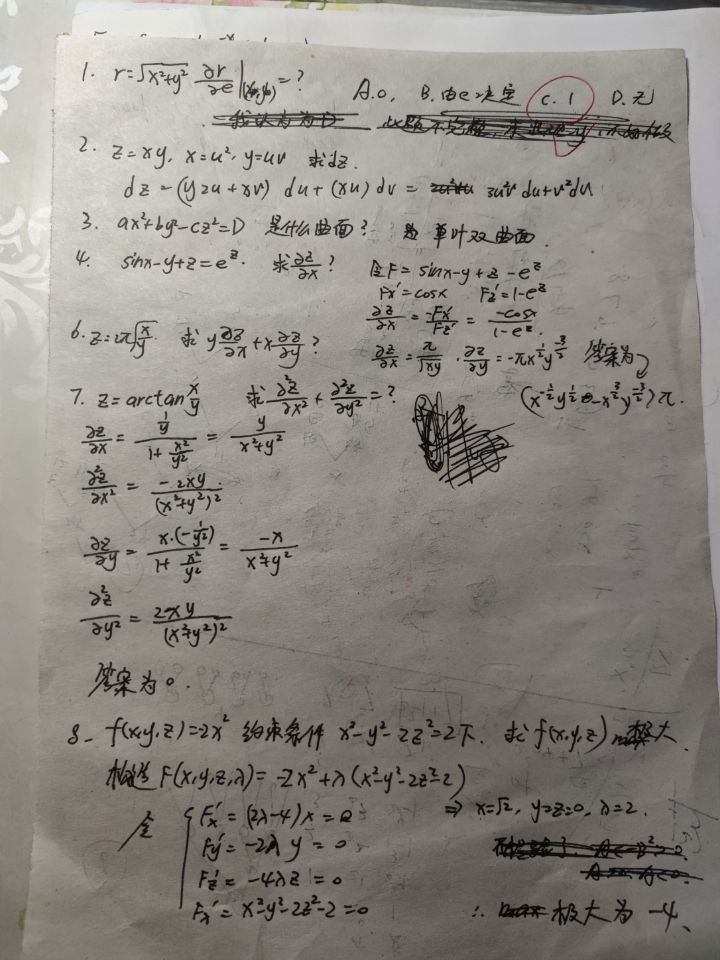 1. r=√(x²+y²) ∂r/∂e|(x₀,y₀)=?
A.0, B.由e决定 C.1 D.无
2. z=xy, x=u², y=uv 求dz.
dz=(y2u+xv)du+(xu)dv= 3u²v du+
3. ax²+by²-cz²=D 是什么曲面? 单叶双曲面.
4. sinx-y+z=e^z. 求∂z/∂x?
令F=sinx-y+z-e^z
Fx'=cosx Fz'=1-e^z
∂z/∂x=-Fx'/Fz'=-cosx/(1-e^z).
6. z=2π√(x/y). 求y∂z/∂x+x∂z/∂y?
∂z/∂x=π/√(xy). ∂z/∂y=-πx^(1/2)y^(-3/2) 答案为
(x^(-1/2)y^(1/2)-x^(3/2)y^(-3/2))π.
7. z=arctan x/y 求∂²z/∂x²+∂²z/∂y²=?
∂z/∂x=(1/y)/(1+x²/y²)=y/(x²+y²)
∂²z/∂x²=-2xy/(x²+y²)².
∂z/∂y=x·(-1/y²)/(1+x²/y²)=-x/(x²+y²)
∂²z/∂y²=2xy/(x²+y²)²
答案为0.
8. f(x,y,z)=-2x² 约束条件 x²-y²-2z²=2下. 求f(x,y,z)极大.
构造F(x,y,z,λ)=-2x²+λ(x²-y²-2z²-2)
令 Fx'=(2λ-4)x=0 ⇒ x=√2, y=z=0, λ=2.
Fy'=-2λy=0
Fz'=-4λz=0
Fλ'=x²-y²-2z²-2=0 ∴ 极大为-4.